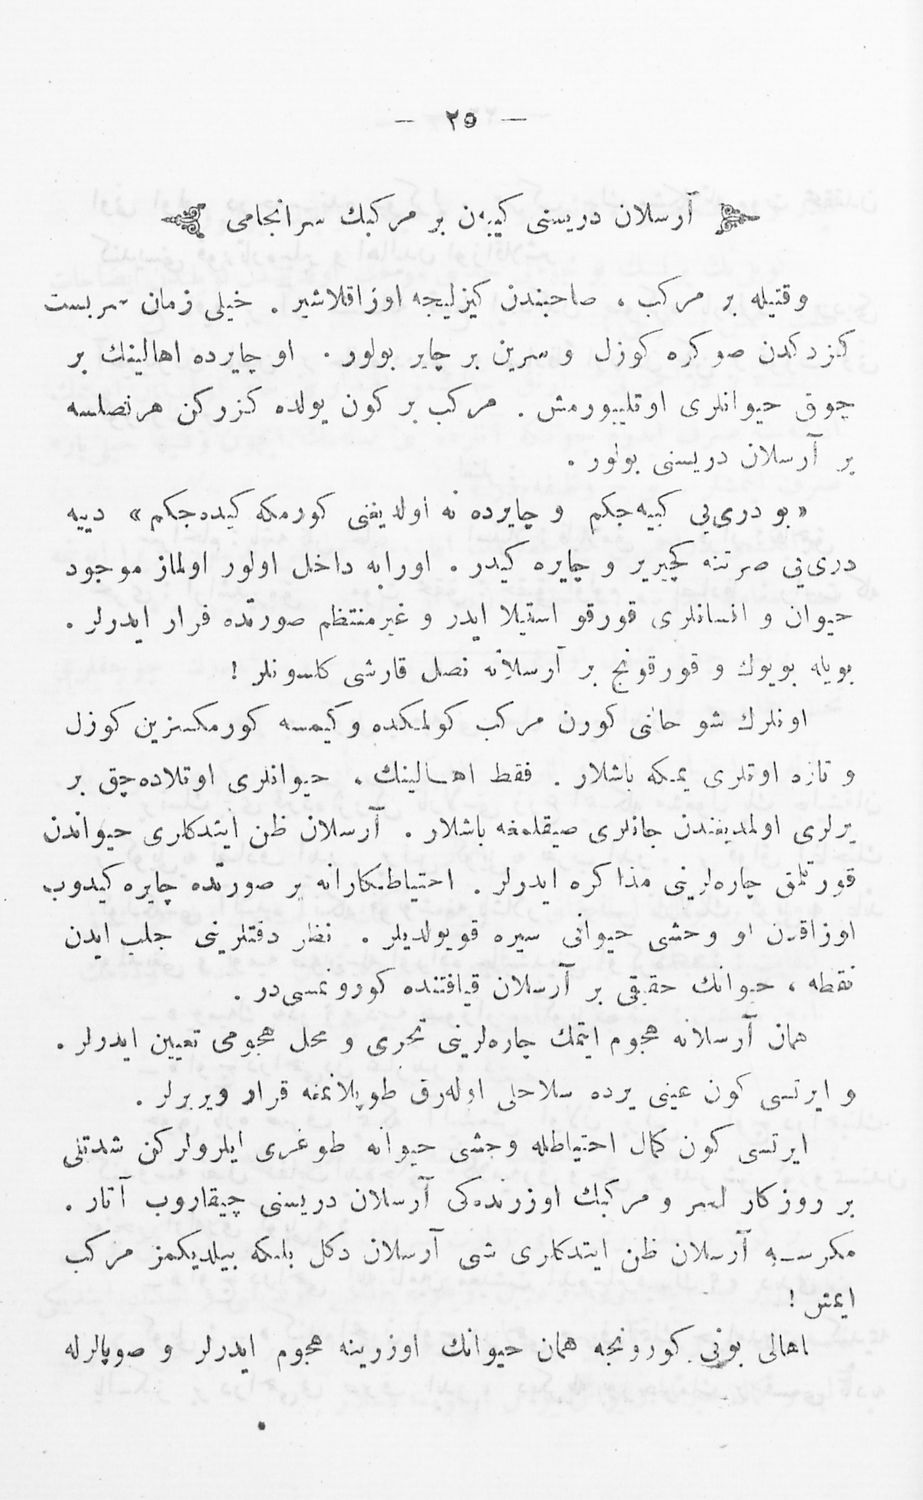 — ٢٥ —
آرسلان دریسنی کییەن بر مرکبك سرانجامی
وقتیله بر مرکب ، صاحبندن کیزلیجه اوزاقلاشیر . خیلی زمان سربست
کزدکدن صوکره کوزل و سرین بر چایر بولور . او چایرده اهالینك بر
چوق حیوانلری اوتلییورمش . مرکب بر کون یولده کزرکن هرنصلسه
بر آرسلان دریسنی بولور .
« بو دری‌یی کییه‌جکم و چایرده نه اولدیغنی کورمکه کیده‌جکم » دییه
دری‌یی صرتنه کچیریر و چایره کیدر . اورایه داخل اولور اولماز موجود
حیوان و انسانلری قورقو استیلا ایدر و غیرمنتظم صورتده فرار ایدرلر .
بویله بویوك و قورقونج بر آرسلانه نصل قارشی کلسونلر !
اونلرك شو حالنی کورن مرکب کولمکده و کیمسه کورمکسزین کوزل
و تازه اوتلری یمکه باشلار . فقط اهالینك ، حیوانلری اوتلاده‌جق بر
یرلری اولمدیغندن جانلری صیقلمغه باشلار . آرسلان ظن ایتدکلری حیواندن
قورتلمق چاره‌لرینی مذاکره ایدرلر . احتیاطکارانه بر صورتده چایره کیدوب
اوزاقدن او وحشی حیوانی سیره قویولدیلر . نظر دقتلرینی جلب ایدن
نقطه ، حیوانك حقیقی بر آرسلان قیافتنده کورونمسی‌در .
همان آرسلانه هجوم ایتمك چاره‌لرینی تحری و محل هجومی تعیین ایدرلر .
و ایرتسی کون عینی یرده سلاحلی اوله‌رق طوپلانمغه قرار ویریرلر .
ایرتسی کون کمال احتیاطله وحشی حیوانه طوغری ایلرولرکن شدتلی
بر روزکار اسر و مرکبك اوزرنده‌کی آرسلان دریسنی چیقاروب آتار .
مکرسه آرسلان ظن ایتدکلری شی آرسلان دکل بلکه بیلدیکمز مرکب
ایمش !
اهالی بونی کورونجه همان حیوانك اوزرینه هجوم ایدرلر و صوپالرله